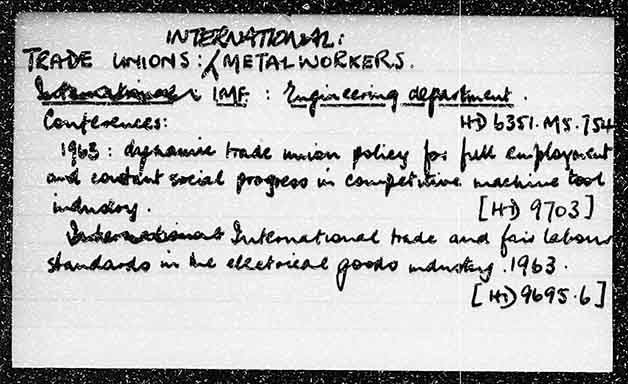 INTERNATIONAL:
TRADE UNIONS: / METALWORKERS.
IMF: Engineering department.
Conferences: HD 6351.M5.Z54
1963: dynamic trade union policy for full employment
and constant social progress in competitive machine tool
industry. [HD 9703]
International International trade and fair labour
standards in the electrical goods industry. 1963.
[HD 9695.6]